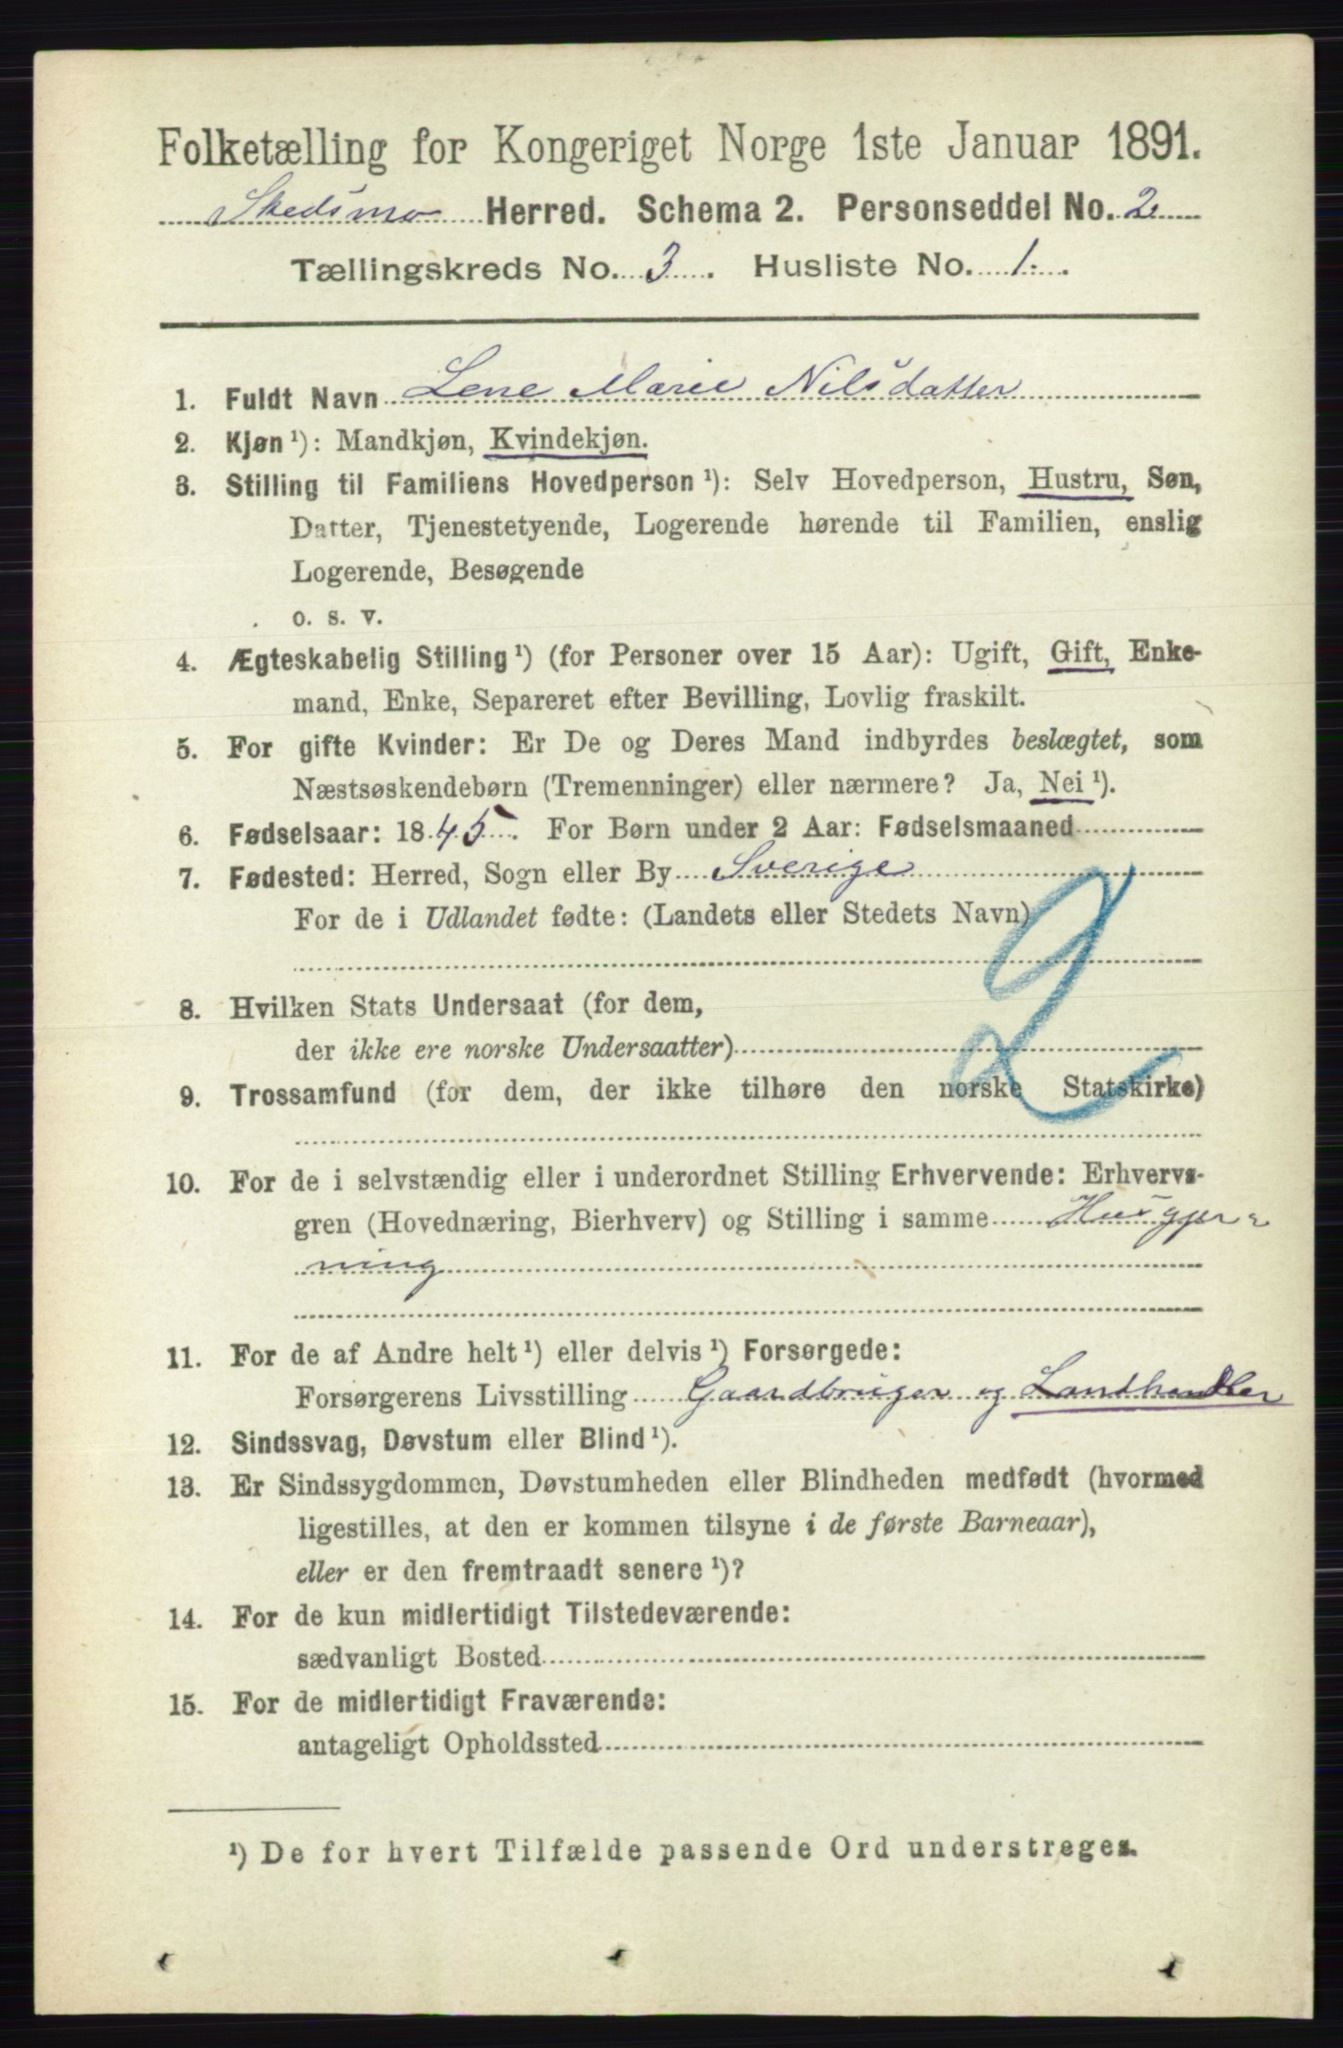 Folketælling for Kongeriget Norge 1ste Januar 1891.
Skedsmo Herred. Schema 2. Personseddel No. 2
Tællingskreds No. 3. Husliste No. 1.
1. Fuldt Navn Lene Marie Nilsdatter
2. Kjøn ¹): Mandkjøn, Kvindekjøn.
3. Stilling til Familiens Hovedperson ¹): Selv Hovedperson, Hustru, Søn,
Datter, Tjenestetyende, Logerende hørende til Familien, enslig
Logerende, Besøgende
o. s. v.
4. Ægteskabelig Stilling ¹) (for Personer over 15 Aar): Ugift, Gift, Enke-
mand, Enke, Separeret efter Bevilling, Lovlig fraskilt.
5. For gifte Kvinder: Er De og Deres Mand indbyrdes beslægtet, som
Næstsøskendebørn (Tremenninger) eller nærmere? Ja, Nei ¹).
6. Fødselsaar: 1845. For Børn under 2 Aar: Fødselsmaaned
7. Fødested: Herred, Sogn eller By Sverige
For de i Udlandet fødte: (Landets eller Stedets Navn)
2
8. Hvilken Stats Undersaat (for dem,
der ikke ere norske Undersaatter)
9. Trossamfund (for dem, der ikke tilhøre den norske Statskirke)
10. For de i selvstændig eller i underordnet Stilling Erhvervende: Erhvervs-
gren (Hovednæring, Bierhverv) og Stilling i samme Husgjer-
ning
11. For de af Andre helt ¹) eller delvis ¹) Forsørgede:
Forsørgerens Livsstilling Gaardbruger og Landhandler
12. Sindssvag, Døvstum eller Blind ¹).
13. Er Sindssygdommen, Døvstumheden eller Blindheden medfødt (hvormed
ligestilles, at den er kommen tilsyne i de første Barneaar),
eller er den fremtraadt senere ¹)?
14. For de kun midlertidigt Tilstedeværende:
sædvanligt Bosted
15. For de midlertidigt Fraværende:
antageligt Opholdssted
¹) De for hvert Tilfælde passende Ord understreges.